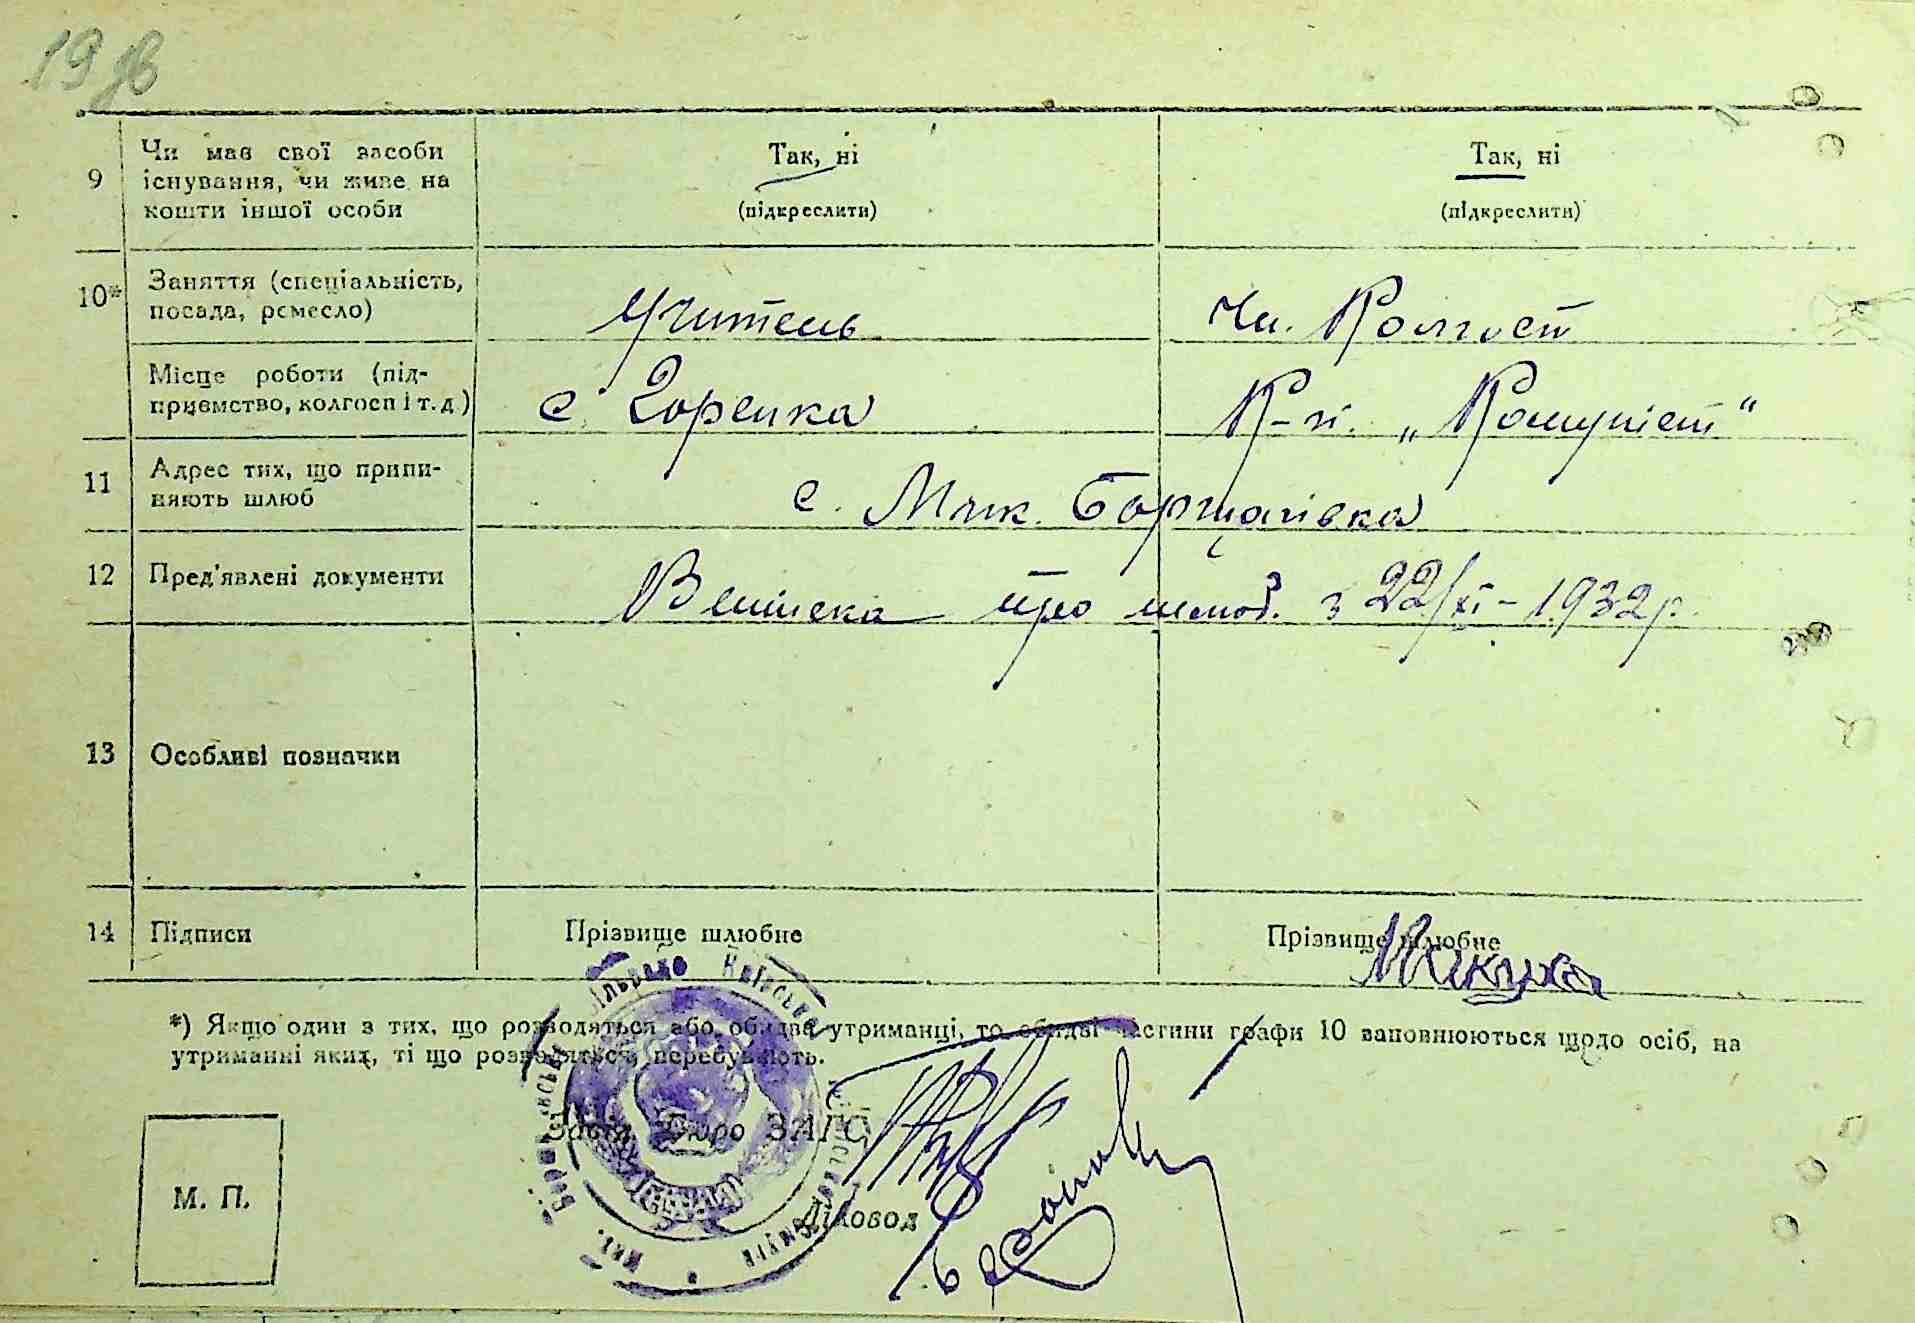 19 зв
9 Чи має свої засоби існування, чи живе на кошти іншої особи
Так, ні
(підкреслити)
Так, ні
(підкреслити)
10* Заняття (спеціальність, посада, ремесло)
Учитель
Чл. Колгосп
Місце роботи (підприємство, колгосп і т. д.)
с. Горенка
К-п. „Комуніст“
11 Адрес тих, що припиняють шлюб
с. Мик. Борщагівка
12 Пред'явлені документи
Виписка про шлюб. з 22/XI – 1932 р.
13 Особливі позначки
14 Підписи
Прізвище шлюбне
Прізвище шлюбне
*) Якщо один з тих, що розводяться або обидва утриманці, то обидві частини графи 10 заповнюються щодо осіб, на
утриманні яких, ті що розводяться, перебувають.
Завід. Бюро ЗАГС
М. П.
Діловод